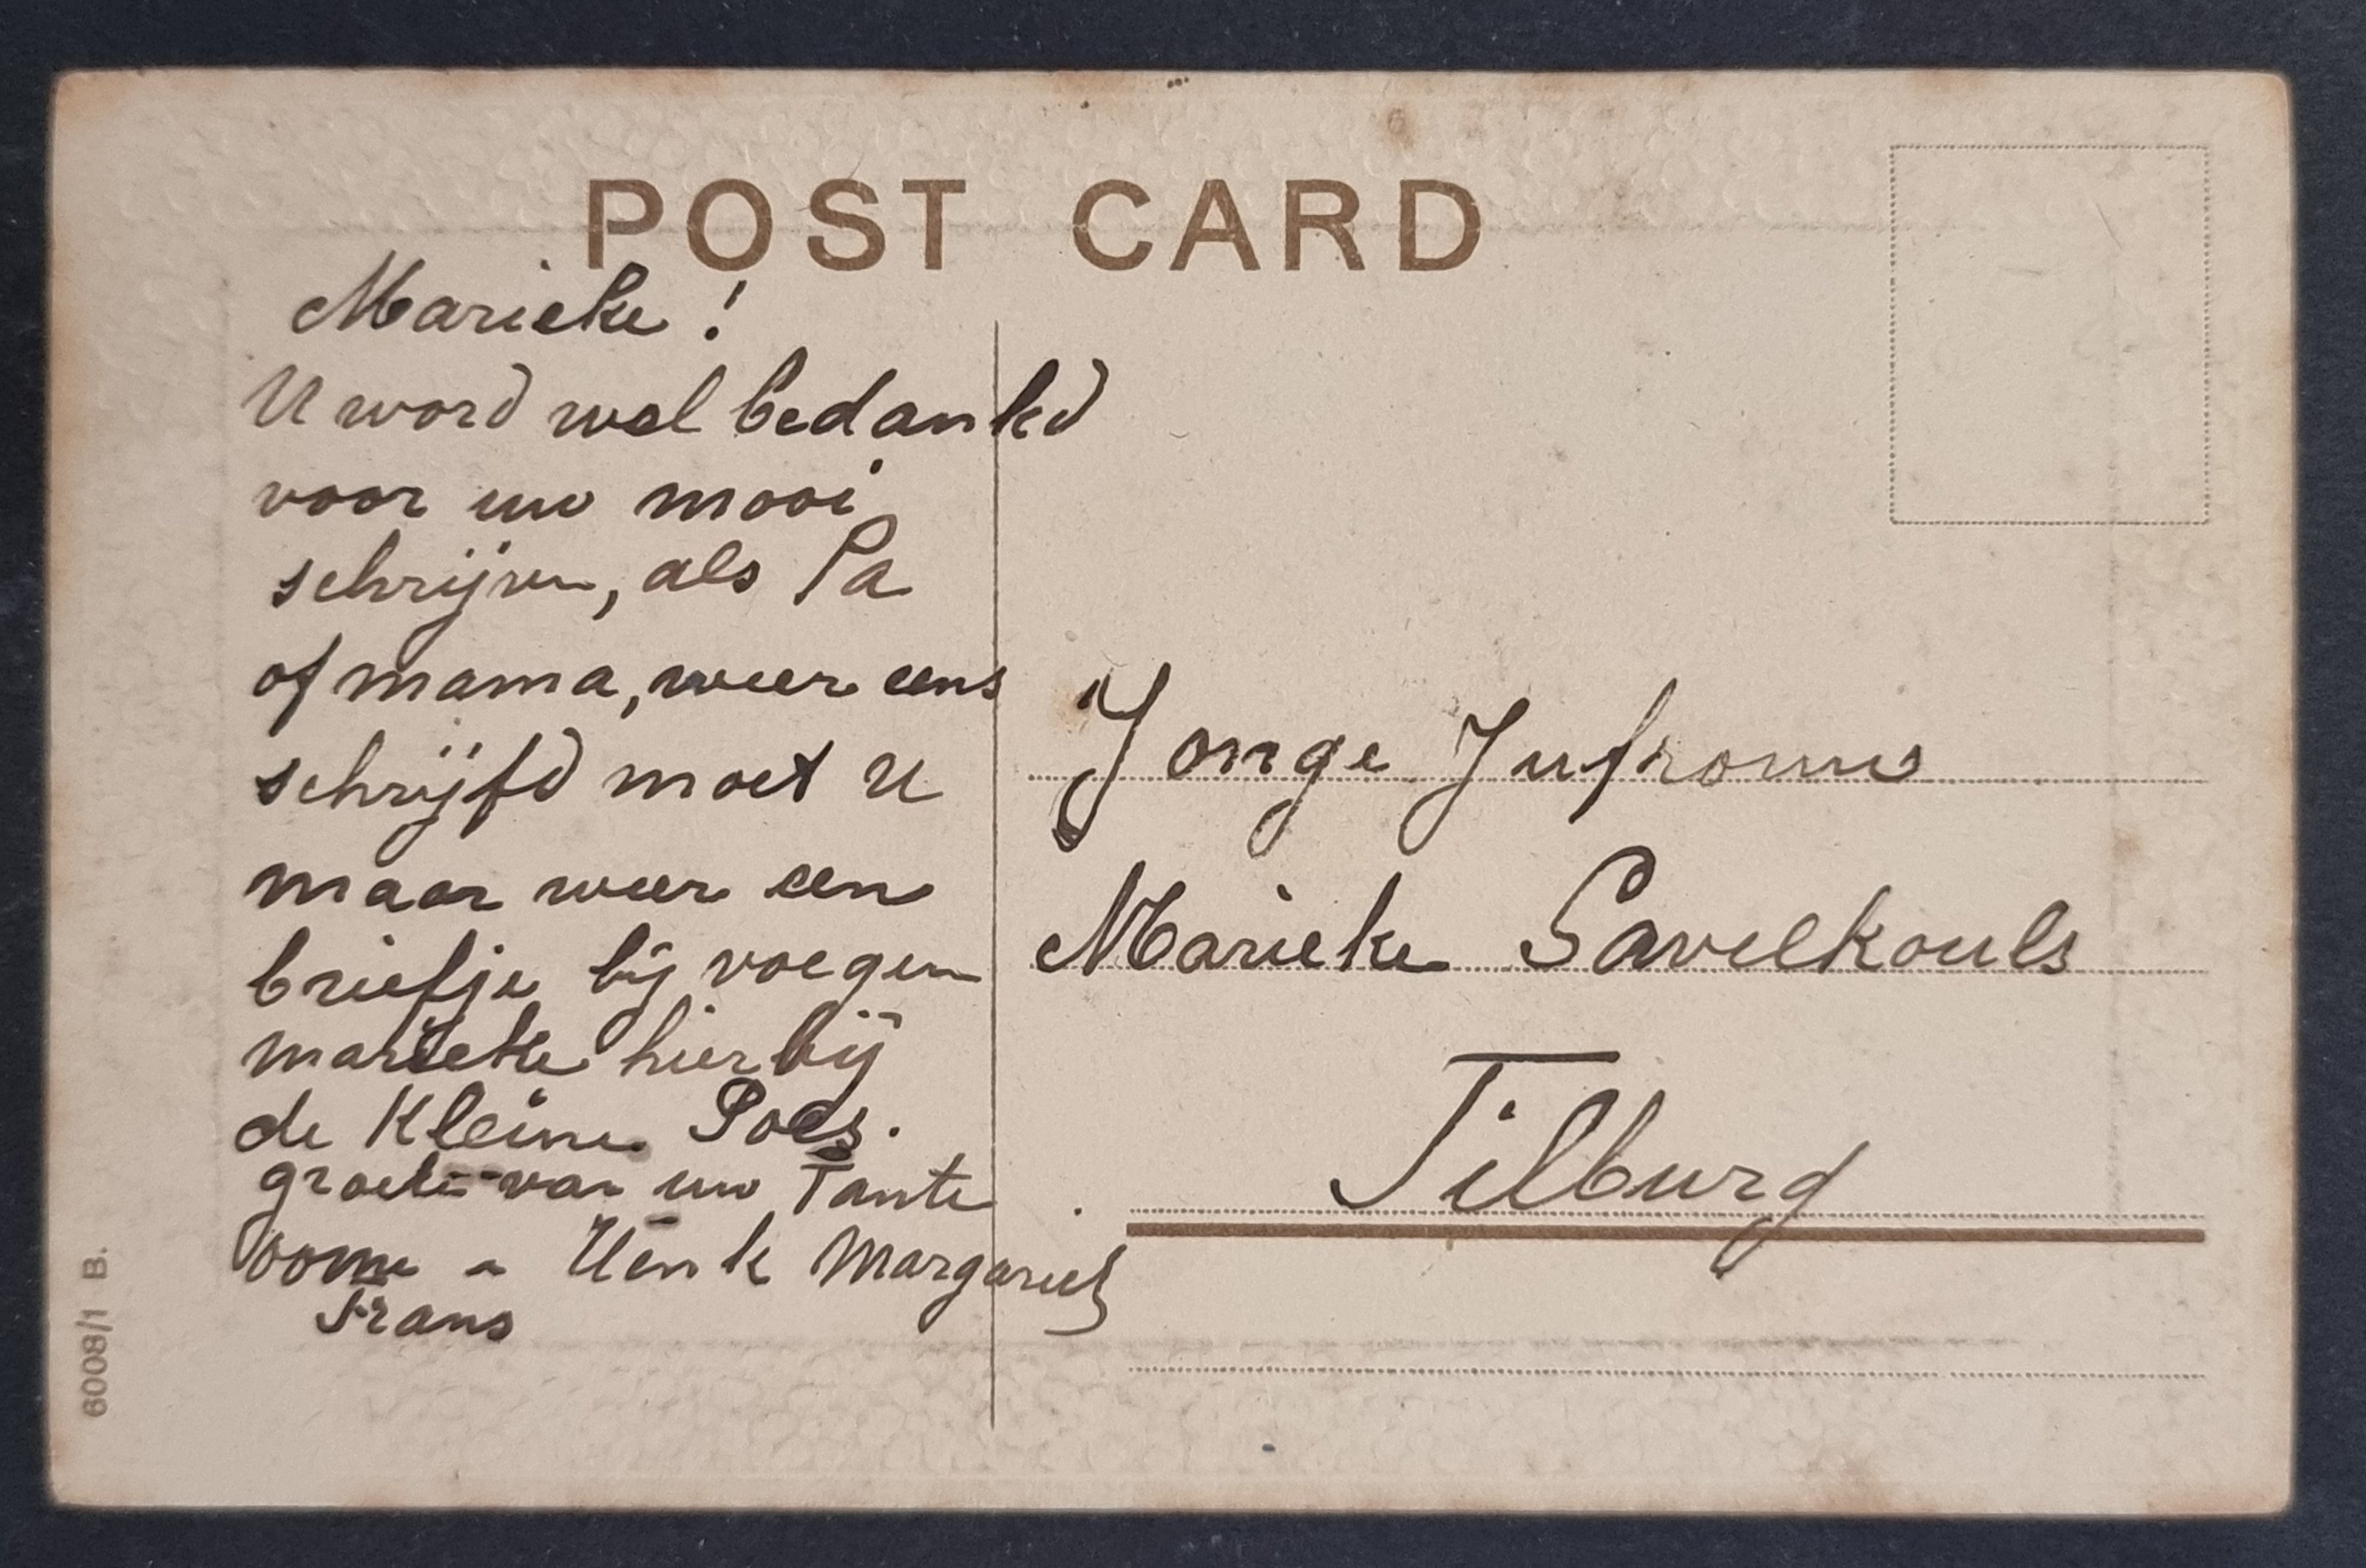 POST CARD
Marieke !
U word wel bedankd
voor uw mooi
schrijven, als Pa
of mama, weer eens
schrijfd moet U
maar weer een
briefje bij voegen
marieke hierbij
de Kleine Poes.
groeten van uw Tante
oome Henk Margariet
Frans
Jonge Jufrouw
Marieke Savelkouls
Tilburg
6008/1 B.